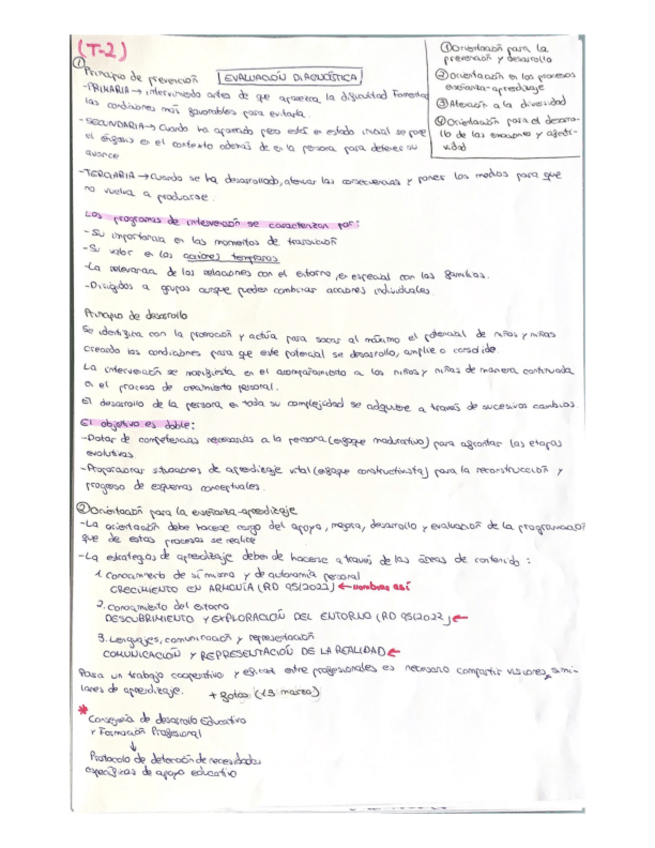 (T-2)
① Orientación para la
prevención y desarrollo
② Orientación en los procesos
enseñanza-aprendizaje
③ Atención a la diversidad
④ Orientación para el desarro-
llo de las emociones y afecti-
vidad
① Principio de prevención EVALUACIÓN DIAGNÓSTICA
-PRIMARIA → interviniendo antes de que aparezca la dificultad. Fomentar
las condiciones más favorables para evitarla.
-SECUNDARIA → Cuando ha aparecido pero está en estado inicial se pone
el énfasis en el contexto además de en la persona para detener su
avance
-TERCIARIA → Cuando se ha desarrollado, atenuar las consecuencias y poner los medios para que
no vuelva a producirse.
Los programas de intervención se caracterizan por:
-Su importancia en los momentos de transición
-Su valor en las acciones tempranas
-La relevancia de las relaciones con el entorno, en especial con las familias.
-Dirigidos a grupos aunque pueden combinar acciones individuales.
Principio de desarrollo
Se identifica con la promoción y actúa para sacar al máximo el potencial de niños y niñas
creando las condiciones para que este potencial se desarrolle, amplíe o consolide.
La intervención se manifiesta en el acompañamiento a los niños y niñas de manera continuada
en el proceso de crecimiento personal.
El desarrollo de la persona en toda su complejidad se adquiere a través de sucesivos cambios.
El objetivo es doble:
-Dotar de competencias necesarias a la persona (enfoque madurativo) para afrontar las etapas
evolutivas.
-Proporcionar situaciones de aprendizaje vital (enfoque constructivista) para la reconstrucción y
progreso de esquemas conceptuales.
② Orientación para la enseñanza-aprendizaje
-La orientación debe hacerse cargo del apoyo, mejora, desarrollo y evaluación de la programación
que de estos procesos se realice
-La estrategias de aprendizaje deben de hacerse a través de las áreas de contenido:
1. Conocimiento de sí mismo y de autonomía personal
CRECIMIENTO EN ARMONÍA (RD 95/2022) ← nombrar así
2. Conocimiento del entorno
DESCUBRIMIENTO Y EXPLORACIÓN DEL ENTORNO (RD 95/2022) ←
3. Lenguajes, comunicación y representación
COMUNICACIÓN Y REPRESENTACIÓN DE LA REALIDAD ←
Para un trabajo cooperativo y eficaz entre profesionales es necesario compartir visiones simi-
lares de aprendizaje. + fotos (13 marzo)
* Consejería de desarrollo Educativo
y Formación Profesional
↓
Protocolo de detección de necesidades
específicas de apoyo educativo